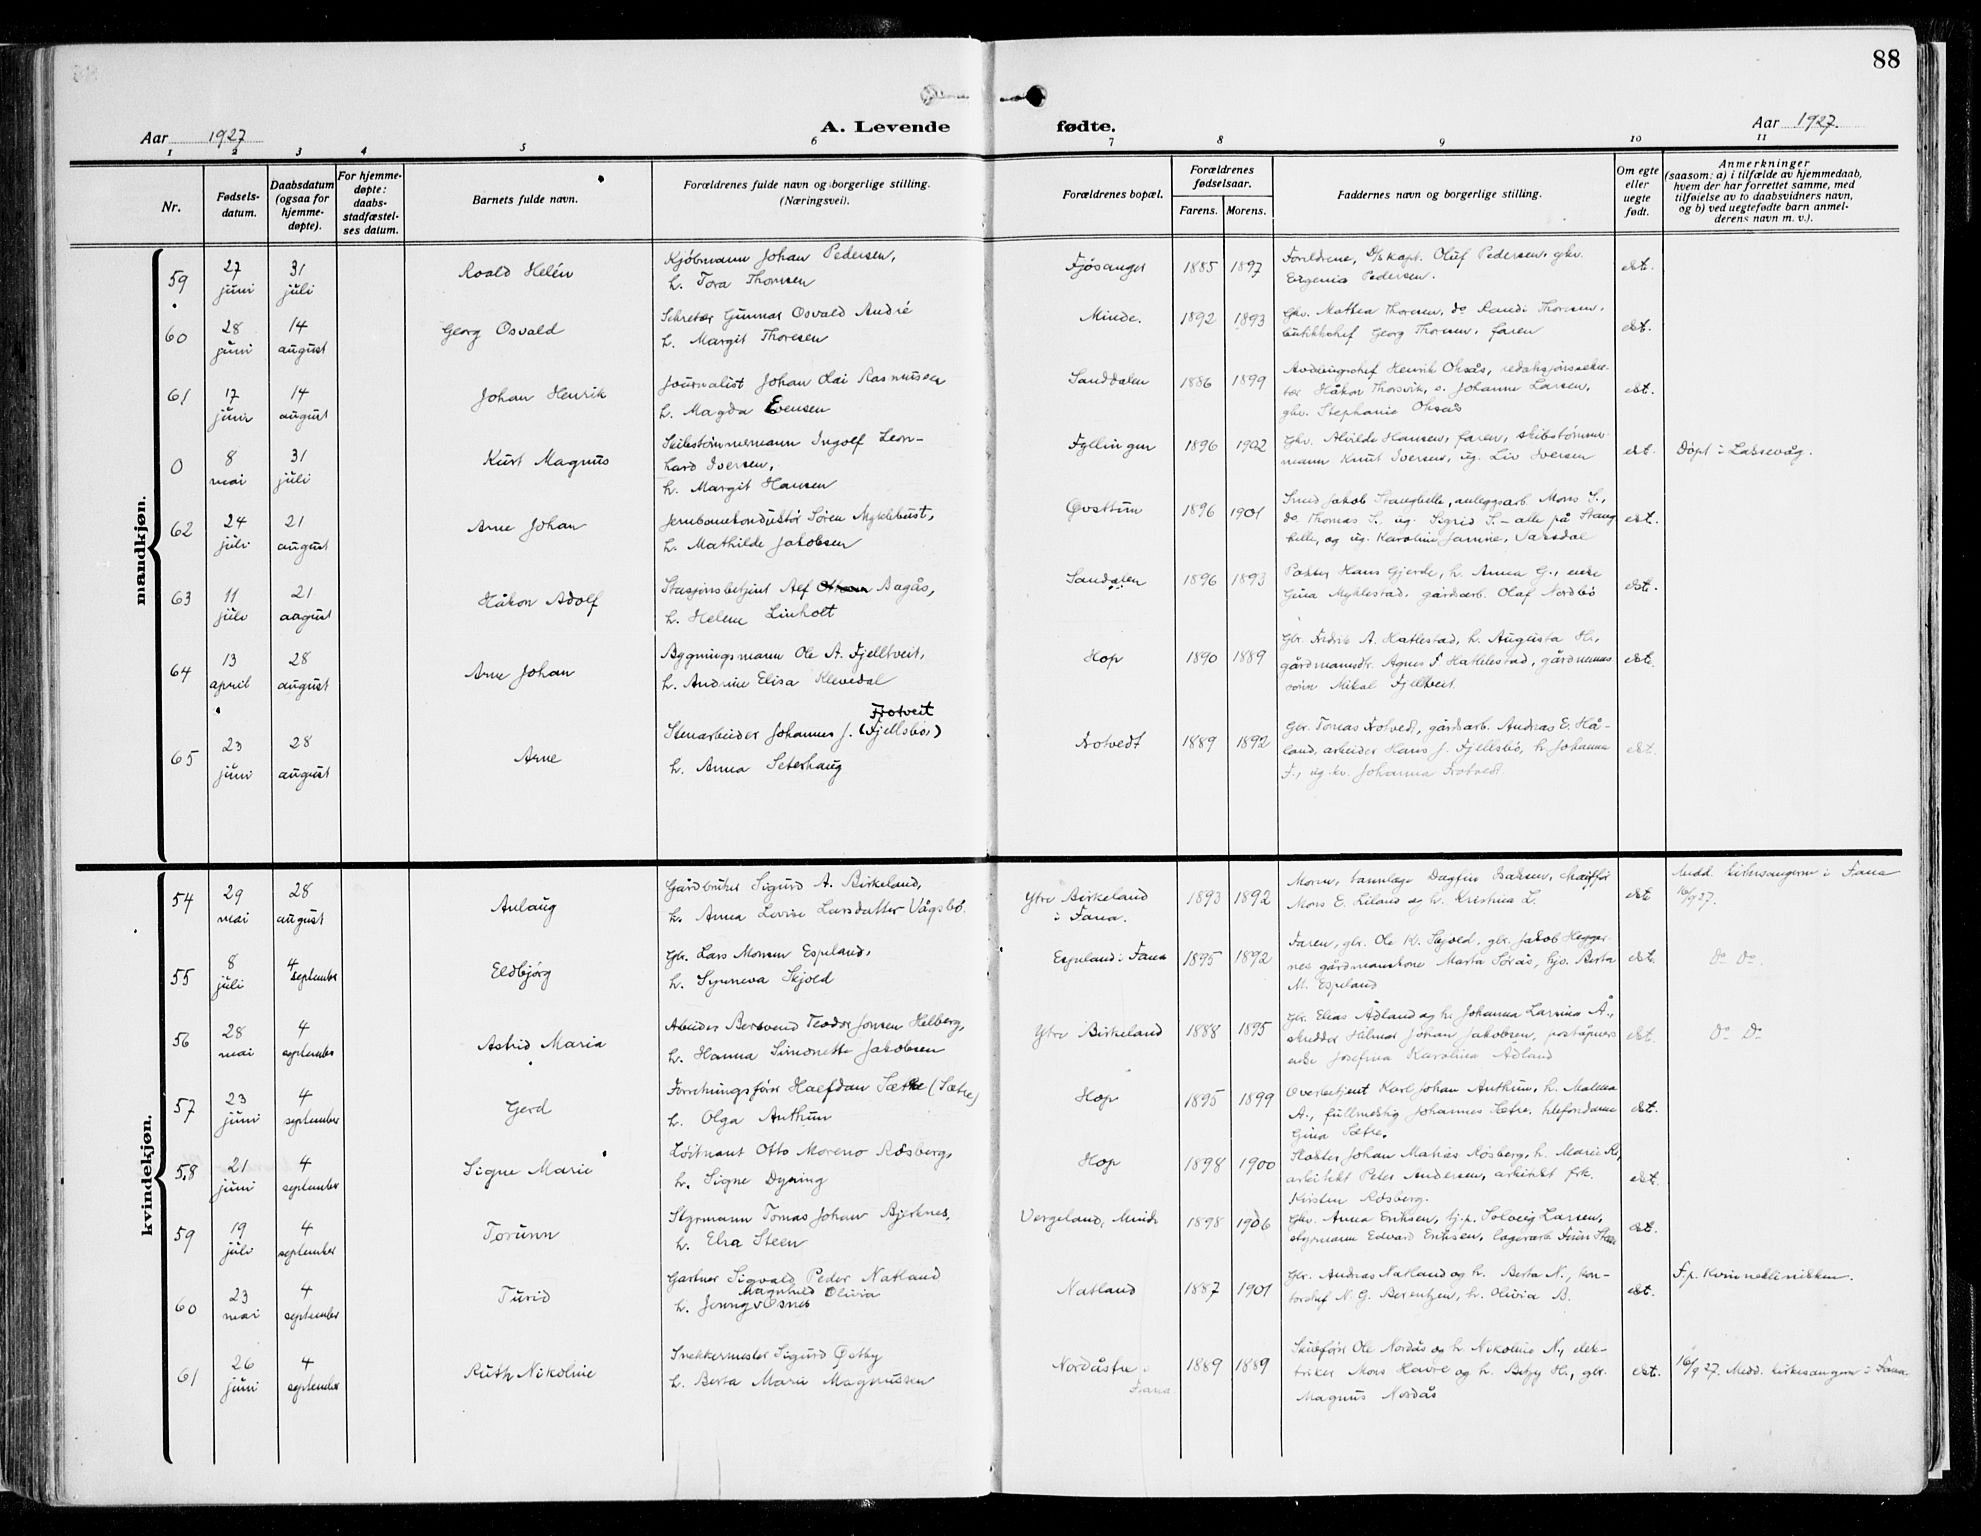 88
Aar 1927
A. Levende fødte.
Aar 1927.
1 2 3 4 5 6 7 8 9 10 11
Nr.
Fødsels-
datum.
Daabsdatum
(ogsaa for
hjemme-
døpte).
For hjemme-
døpte:
daabs-
stadfæstel-
ses datum.
Barnets fulde navn.
Forældrenes fulde navn og borgerlige stilling.
(Næringsvei).
Forældrenes bopæl.
Forældrenes
fødselsaar.
Farens. Morens.
Faddernes navn og borgerlige stilling.
Om egte
eller
uegte
født.
Anmerkninger
(saasom: a) i tilfælde av hjemmedaab,
hvem der har forrettet samme, med
tilføielse av to daabsvidners navn,
og b) ved uegtefødte barn anmel-
derens navn m. v.).
mandkjøn.
59
27
juni
31
juli
Roald Helén
Kjøbmann Johan Pedersen,
h. Tora Thomsen
Fjøsanger
1885 1897
Foreldrene, D/s kapt. Oluf Pedersen, ghv.
Eugenia Pedersen.
ekt.
60
28
juni
14
august
Georg Osvald
Sekretær Gunnar Osvald André
h. Margit Thoresen
Minde.
1892 1893
Ghv. Mathea Thoresen, do Randi Thoresen,
butikkchef Georg Thoresen, faren
ekt.
61
17
juni
14
august
Johan Henrik
Journalist Johan Olai Rasmussen
h. Magda Evensen
Sanddalen
1886 1899
Avdelingschef Henrik Oksås, redaksjonssekre-
tær Håkon Thorsvik, v. Johanne Larsen,
ghv. Stephanie Oksås
ekt.
0
8
mai
31
juli
Kurt Magnus
Skibstømmermann Ingolf Leon-
hard Iversen,
h. Margit Hansen
Fyllingen
1896 1902
Ghv. Alvilde Hansen, faren, skibstømmer-
mann Knut Iversen, ug. Liv Iversen
ekt.
Døpt i Laksevåg.
62
24
juli
21
august
Arne Johan
Jernbanekonduktør Søren Myklebust,
h. Mathilde Jakobsen
Øvsttun
1896 1901
Smed Jakob Stanghelle, anleggsarb. Mons S.,
do Thomas S., ug. Sigrid S. – alle på Stang
helle, og ug. Karoline Jamne, Vaksdal
ekt.
63
11
juli
21
august
Håkon Adolf
Stasjonsbetjent Alf Bagås,
h. Helene Linholt
Sandalen
1896 1893
Pakker Hans Gjerde, h. Anna G., enke
Gina Myklestad, gårdsarb. Olaf Nordbø
ekt.
64
13
april
28
august
Arne Johan
Bygningsmann Ole A. Fjelltveit,
h. Andrine Elisa Klevedal
Hop
1890 1889
Gbr. Fredrik A. Hatlestad, h. Augusta H.,
gårdmannsdtr. Agnes F Hatlestad, gårdmanns
sønn Mikal Fjelltveit.
ekt.
65
23
juni
28
august
Arne
Frotveit
Stenarbeider Johannes J. (Fjellsbø)
h. Anna Seterhaug
Frotvedt
1889 1892
Gbr. Tomas Frotvedt, gårdsarb. Andreas E. Hå-
land, arbeider Hans J. Fjellsbø, h. Johanna
F., ug. kv. Johanna Frotvedt.
ekt.
kvindekjøn.
54
29
mai
28
august
Anlaug
Gårdbruker Sigurd A. Birkeland,
h. Anna Lovise Larsdatter Vågsbø.
Ytre Birkeland
i Fana.
1893 1892
Moren, tannlæge Dagfin Isaksen, chauffør
Mons E. Liland og h. Kristina L.
ekt
Medd. kirkesangeren i Fana
16/9 27.
55
8
juli
4
september
Eldbjørg
Gbr. Lars Monsen Espeland,
h. Synneva Skjold
Espeland i Fana
1895 1892
Faren, gbr. Ole K. Skjold, gbr. Jakob Hegger-
nes gårdmannskone Marta Sørås, hjv. Berta
M. Espeland
ekt.
Do Do.
56
28
mai
4
september
Astrid Maria
Arbeider Bersvend Teodor Jonsen Helberg,
h. Hanna Simonette Jakobsen
Ytre Birkeland
1888 1895
Gbr. Elias Ådland og h. Johanna Larnina Å.,
skredder Hilmar Johan Jakobsen, poståpners
enke Josefina Karolina Ådland
ekt.
Do Do
57
23
juni
4
september
Gerd
Forretningsfører Halfdan Sæthre (Sætre)
h. Olga Anthun
Hop
1895 1899
Overbetjent Karl Johan Anthun, h. Malena
A., fullmektig Johannes Sætre, telefondame
Gina Sætre.
ekt.
58
21
juni
4
september
Signe Marie
Løitnant Otto Moreno Røsberg,
h. Signe Dyning
Hop
1898 1900
Slakter Johan Matias Røsberg, h. Marie R,
arkitekt Peter Andersen, arkitekt frk.
Kirsten Røsberg.
ekt.
59
19
juli
4
september
Torunn
Styrmann Tomas Johan Bjerknes,
h. Elsa Steen
Vergeland, Minde
1898 1906
Ghv. Anna Eriksen, tj.p. Solveig Larsen,
styrmann Edvard Eriksen, lagerarb. Finn Steen
ekt.
60
23
mai
4
september
Turid
Gartner Sigvald Peder Natland
Magnhild Olivia
h. Jenny Osnes
Natland
1887 1901
Gbr. Andreas Natland og h. Berta N., kon-
torchef N. G. Berentzen, h. Olivia B.
ekt.
F.p. Kvinneklinikken.
61
26
juni
4
september
Ruth Nikoline
Snekkermester Sigurd Østby
h. Berta Marie Magnussen
Nordåstre i
Fana
1889 1889
Skibsfører Ole Nordås og h. Nikoline N., elek-
triker Mons Havre og h. Betzy H., gbr.
Magnus Nordås
ekt.
16/9 27. Medd. kirkesangeren i Fana.